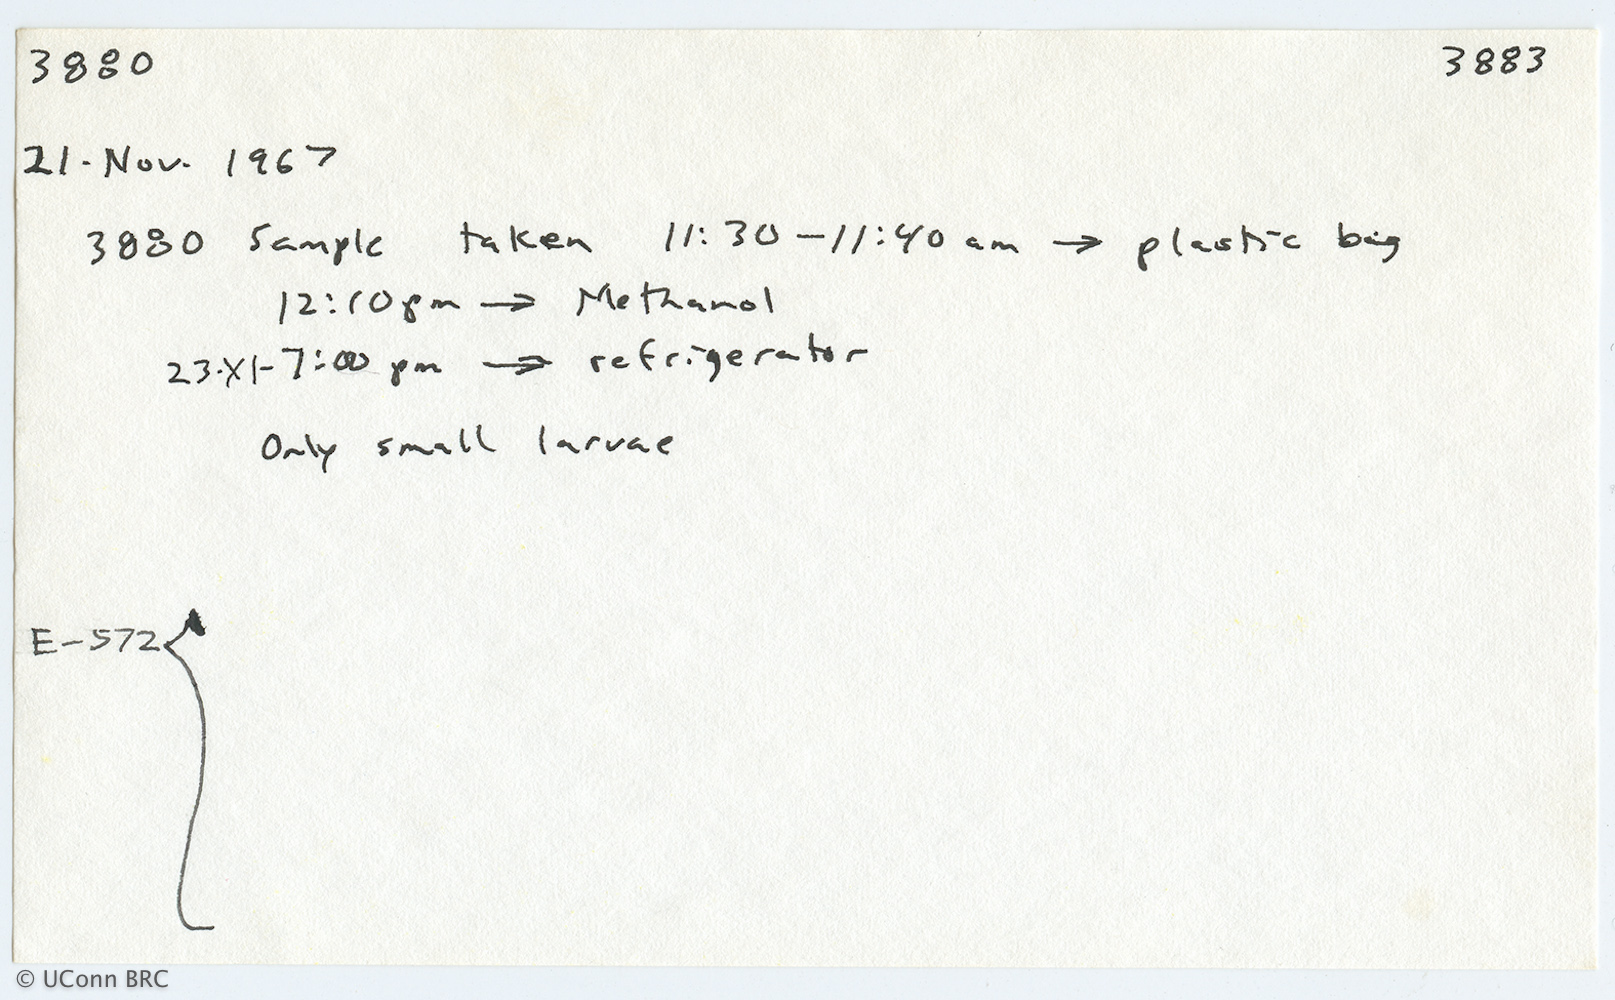 3880 3883
21. Nov. 1967
3880 Sample taken 11:30 - 11:40 am → plastic bag
12:10 pm → Methanol
23.XI- 7:00 pm → refrigerator
Only small larvae
E-572
© UConn BRC